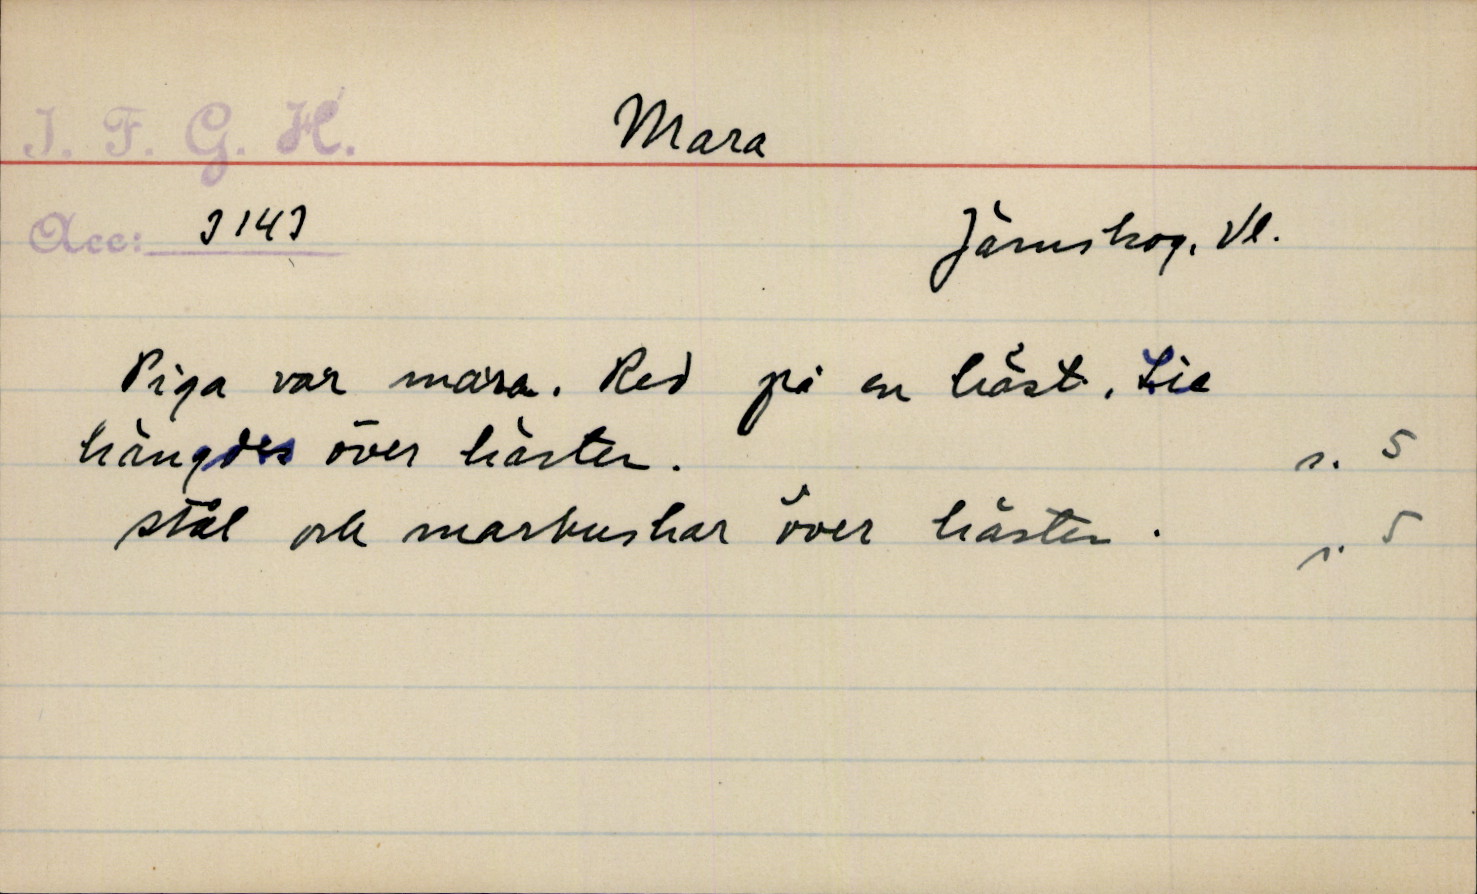 I. F. G. H.
Mara
Acc: 3143
Järnskog, Vl.
Piga var mara. Red på en häst. Lie
hängdes över hästen. s. 5
stål och markuskar över hästen. s. 5